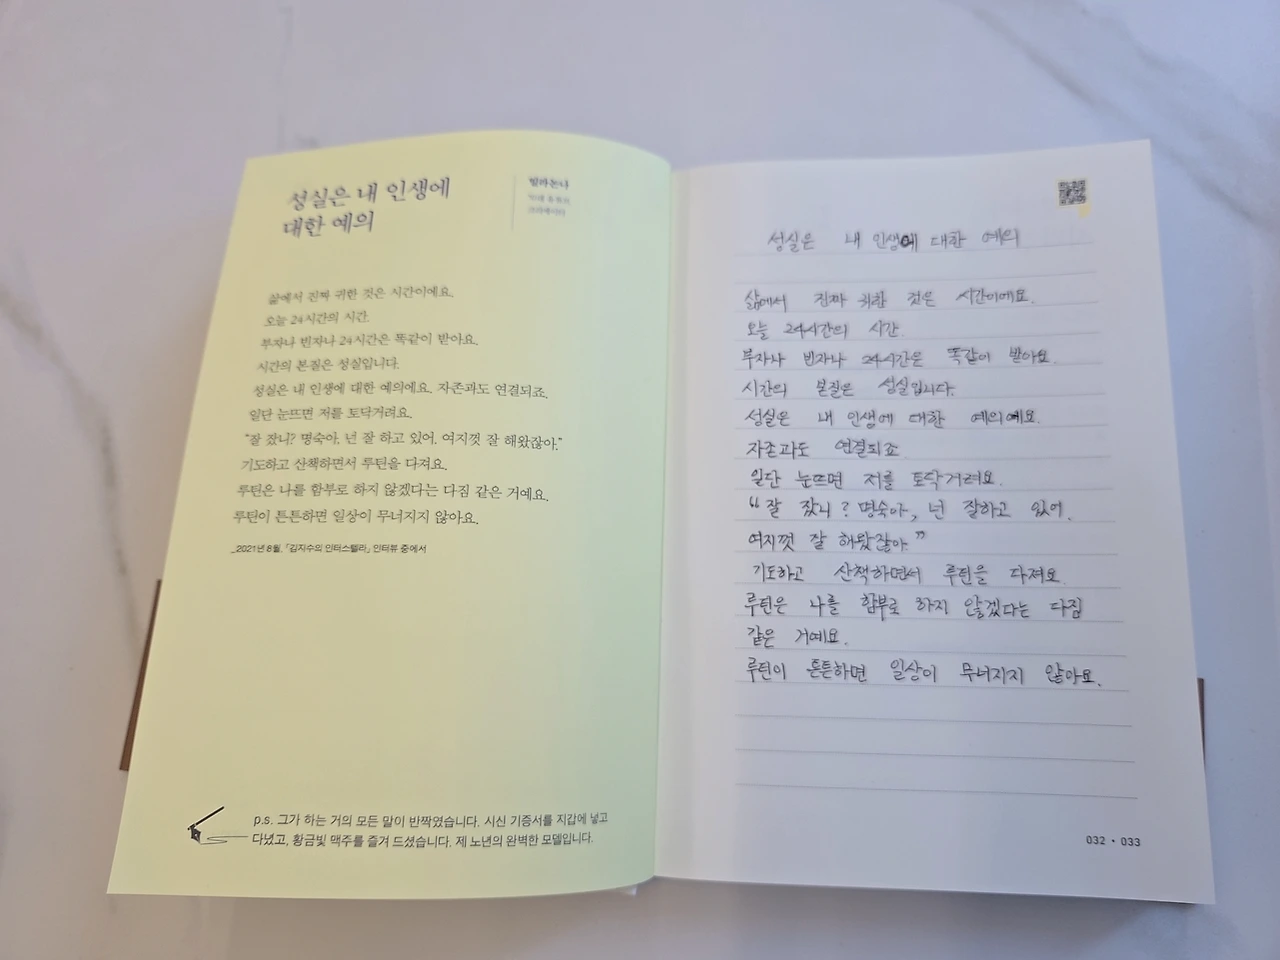 성실은 내 인생에
대한 예의
밀라논나
크리에이터
삶에서 진짜 귀한 것은 시간이에요.
오늘 24시간의 시간.
부자나 빈자나 24시간은 똑같이 받아요.
시간의 본질은 성실입니다.
성실은 내 인생에 대한 예의에요. 자존과도 연결되죠.
일단 눈뜨면 저를 토닥거려요.
“잘 잤니? 명숙아, 넌 잘 하고 있어, 여지껏 잘 해왔잖아.”
기도하고 산책하면서 루틴을 다져요.
루틴은 나를 함부로 하지 않겠다는 다짐 같은 거예요.
루틴이 튼튼하면 일상이 무너지지 않아요.
_2021년 8월, 「김지수의 인터스텔라」 인터뷰 중에서
p.s. 그가 하는 거의 모든 말이 반짝였습니다. 시신 기증서를 지갑에 넣고
다녔고, 황금빛 맥주를 즐겨 드셨습니다. 제 노년의 완벽한 모델입니다.
성실은 내 인생에 대한 예의
삶에서 진짜 귀한 것은 시간이에요.
오늘 24시간의 시간.
부자나 빈자나 24시간은 똑같이 받아요.
시간의 본질은 성실입니다.
성실은 내 인생에 대한 예의에요.
자존과도 연결되죠
일단 눈뜨면 저를 토닥거려요.
“잘 잤니? 명숙아, 넌 잘하고 있어.
여지껏 잘 해왔잖아.”
기도하고 산책하면서 루틴을 다져요.
루틴은 나를 함부로 하지 않겠다는 다짐
같은 거예요.
루틴이 튼튼하면 일상이 무너지지 않아요.
032 • 033